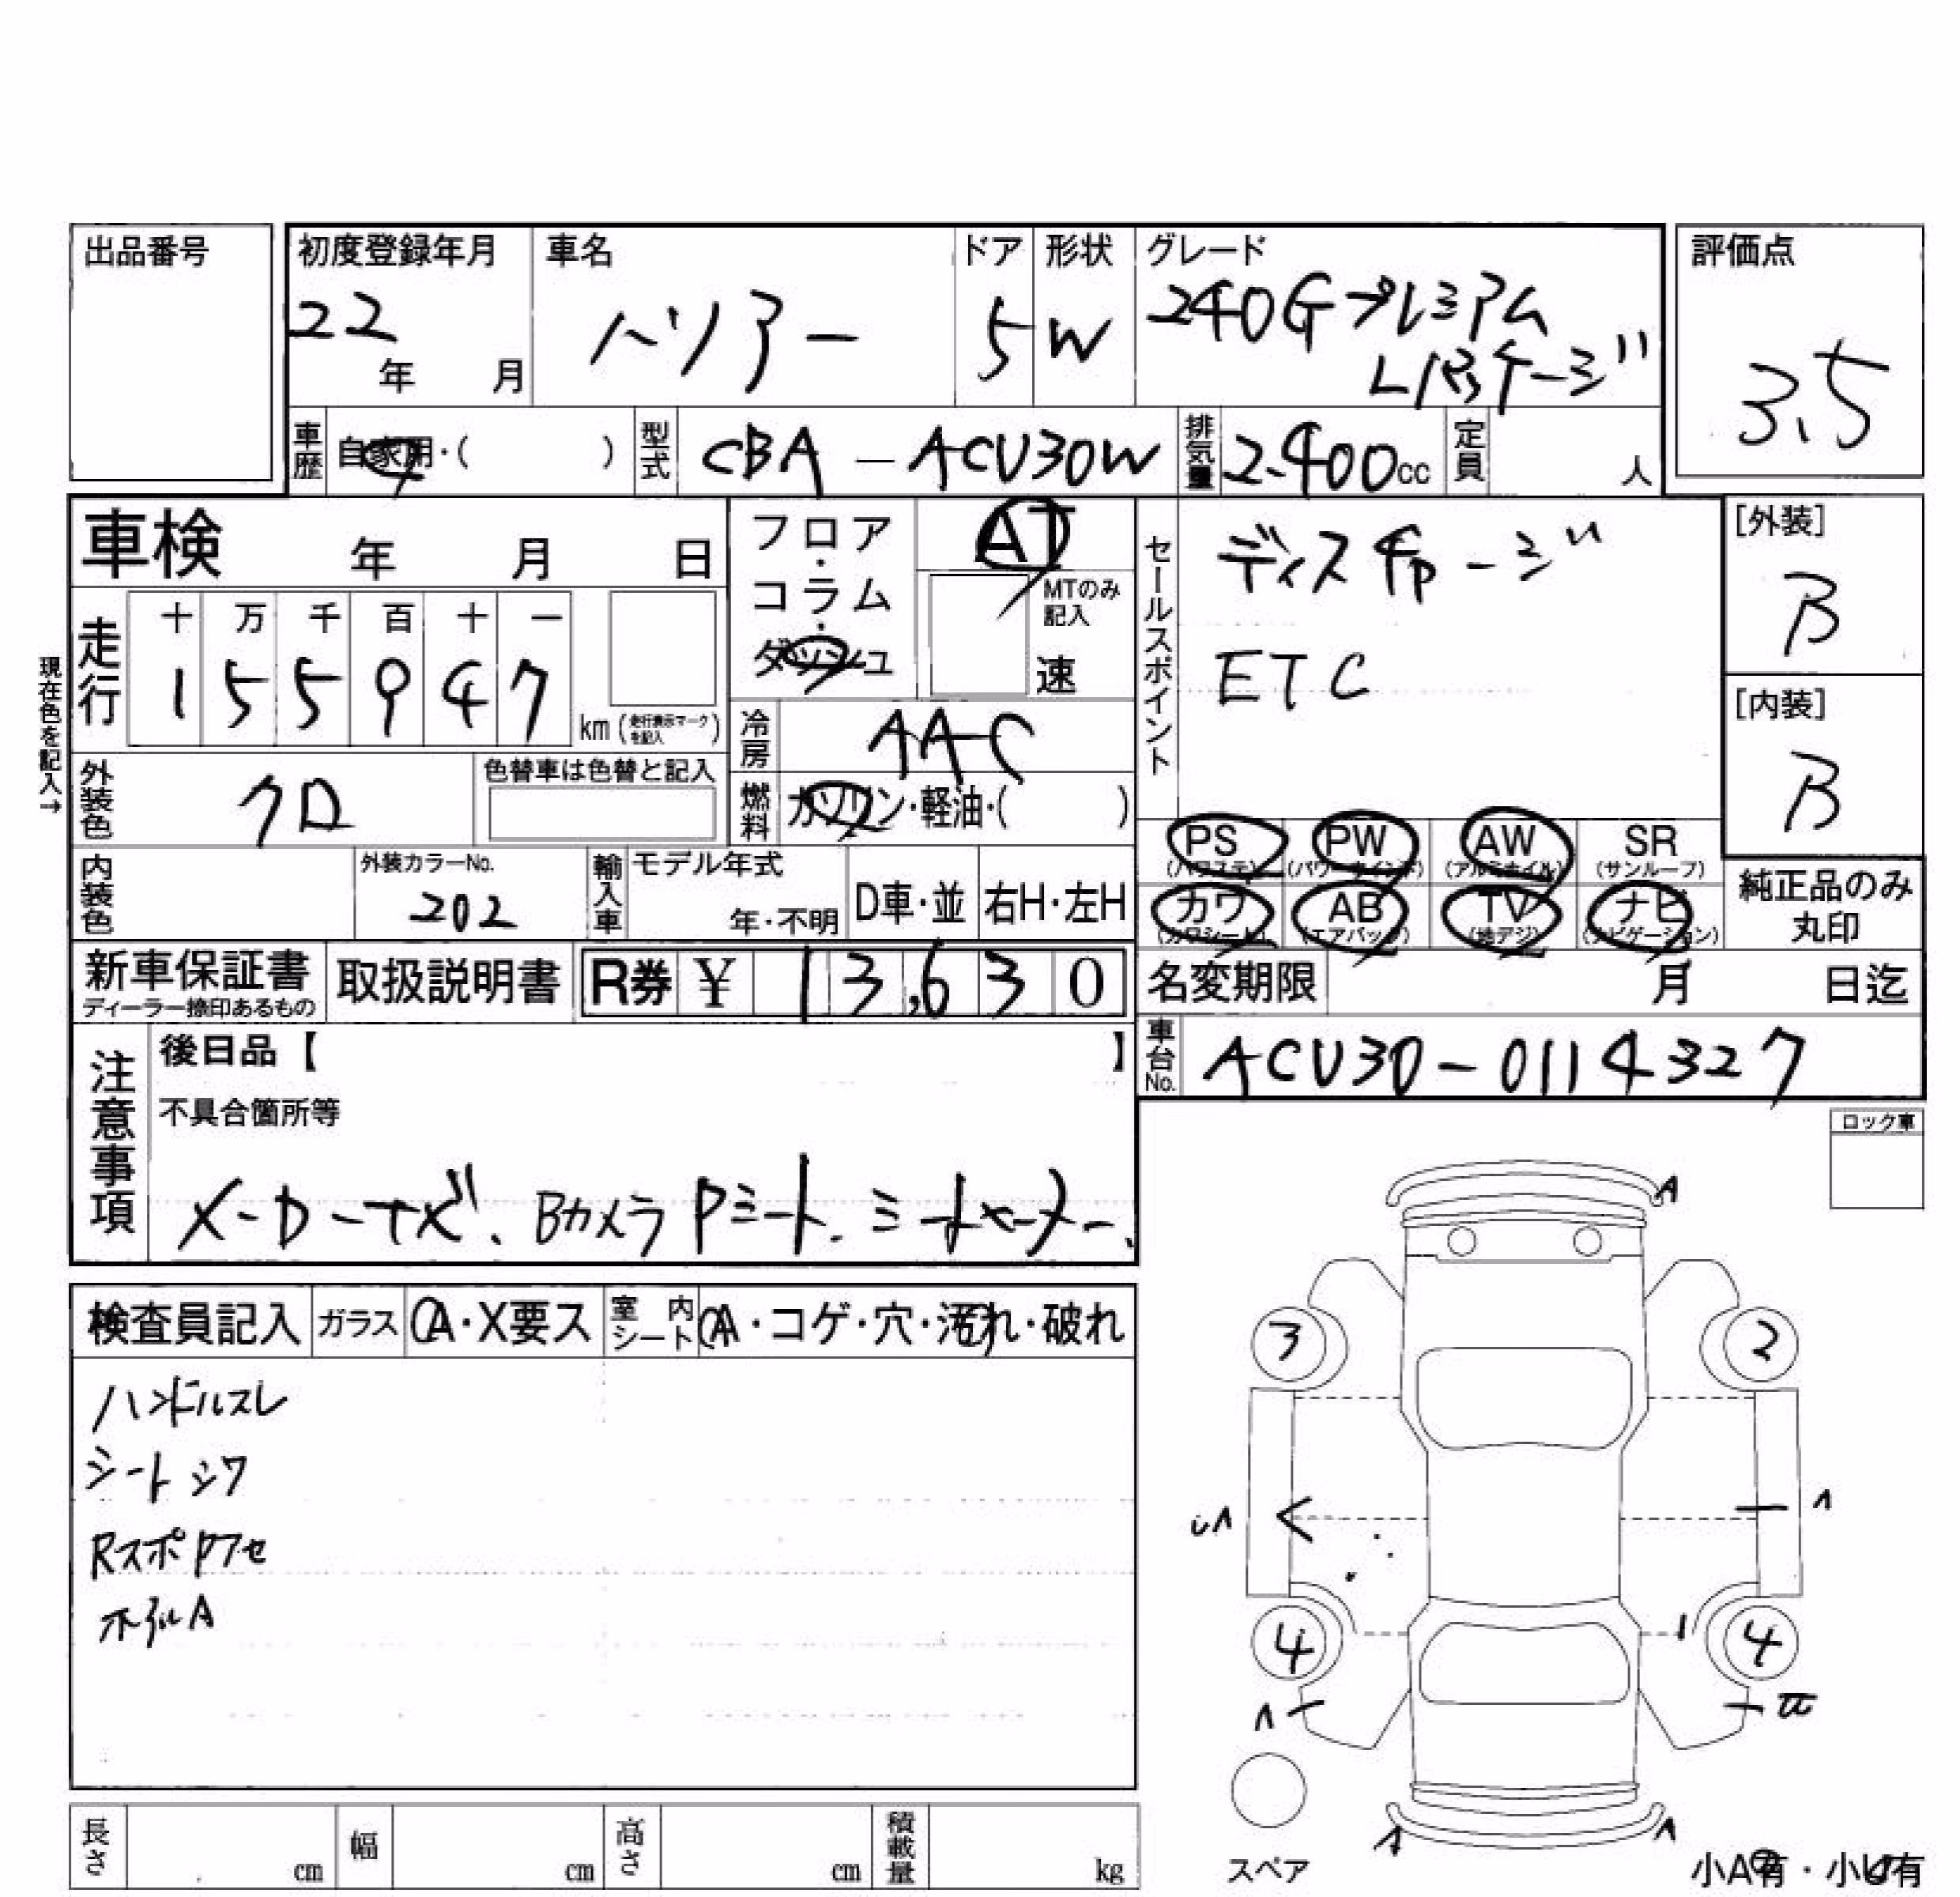 出品番号
初度登録年月 車名 ドア 形状 グレード 評価点
22 年 月 ハリアー 5 W 240Gプレミアム
Lパッケージ
3.5
車歴 自家用・( ) 型式 CBA-ACU30W 排気量 2400cc 定員 人
車検 年 月 日
フロア・コラム・ダッシュ AT
MTのみ記入 速
セールスポイント ディスチャージ
ETC
[外装] B
[内装] B
現在色を記入→
走行 十 万 千 百 十 一
1 5 5 9 4 7 km (走行表示マークを記入)
冷房 AAC
外装色 クロ 色替車は色替と記入
燃料 ガソリン・軽油・( )
PS (パワステ) PW (パワーウインド) AW (アルミホイル) SR (サンルーフ)
カワ (カワシート) AB (エアバッグ) TV (地デジ) ナビ (ナビゲーション)
純正品のみ丸印
内装色 外装カラーNo. 202 輸入車 モデル年式 年・不明 D車・並 右H・左H
新車保証書 ディーラー捺印あるもの 取扱説明書 R券 ¥ 13,630
名変期限 月 日迄
車台No. ACU30-0114327
注意事項 後日品【 】
不具合箇所等
Bカメラ Pシート.
ロック車
検査員記入 ガラス A・X要ス 室内シート A・コゲ・穴・汚れ・破れ
ハンドルスレ
シートシワ
Rスポ
ホイルA
A
3 2
4 4
A A
スペア
小A有・小U有
長さ cm 幅 cm 高さ cm 積載量 kg